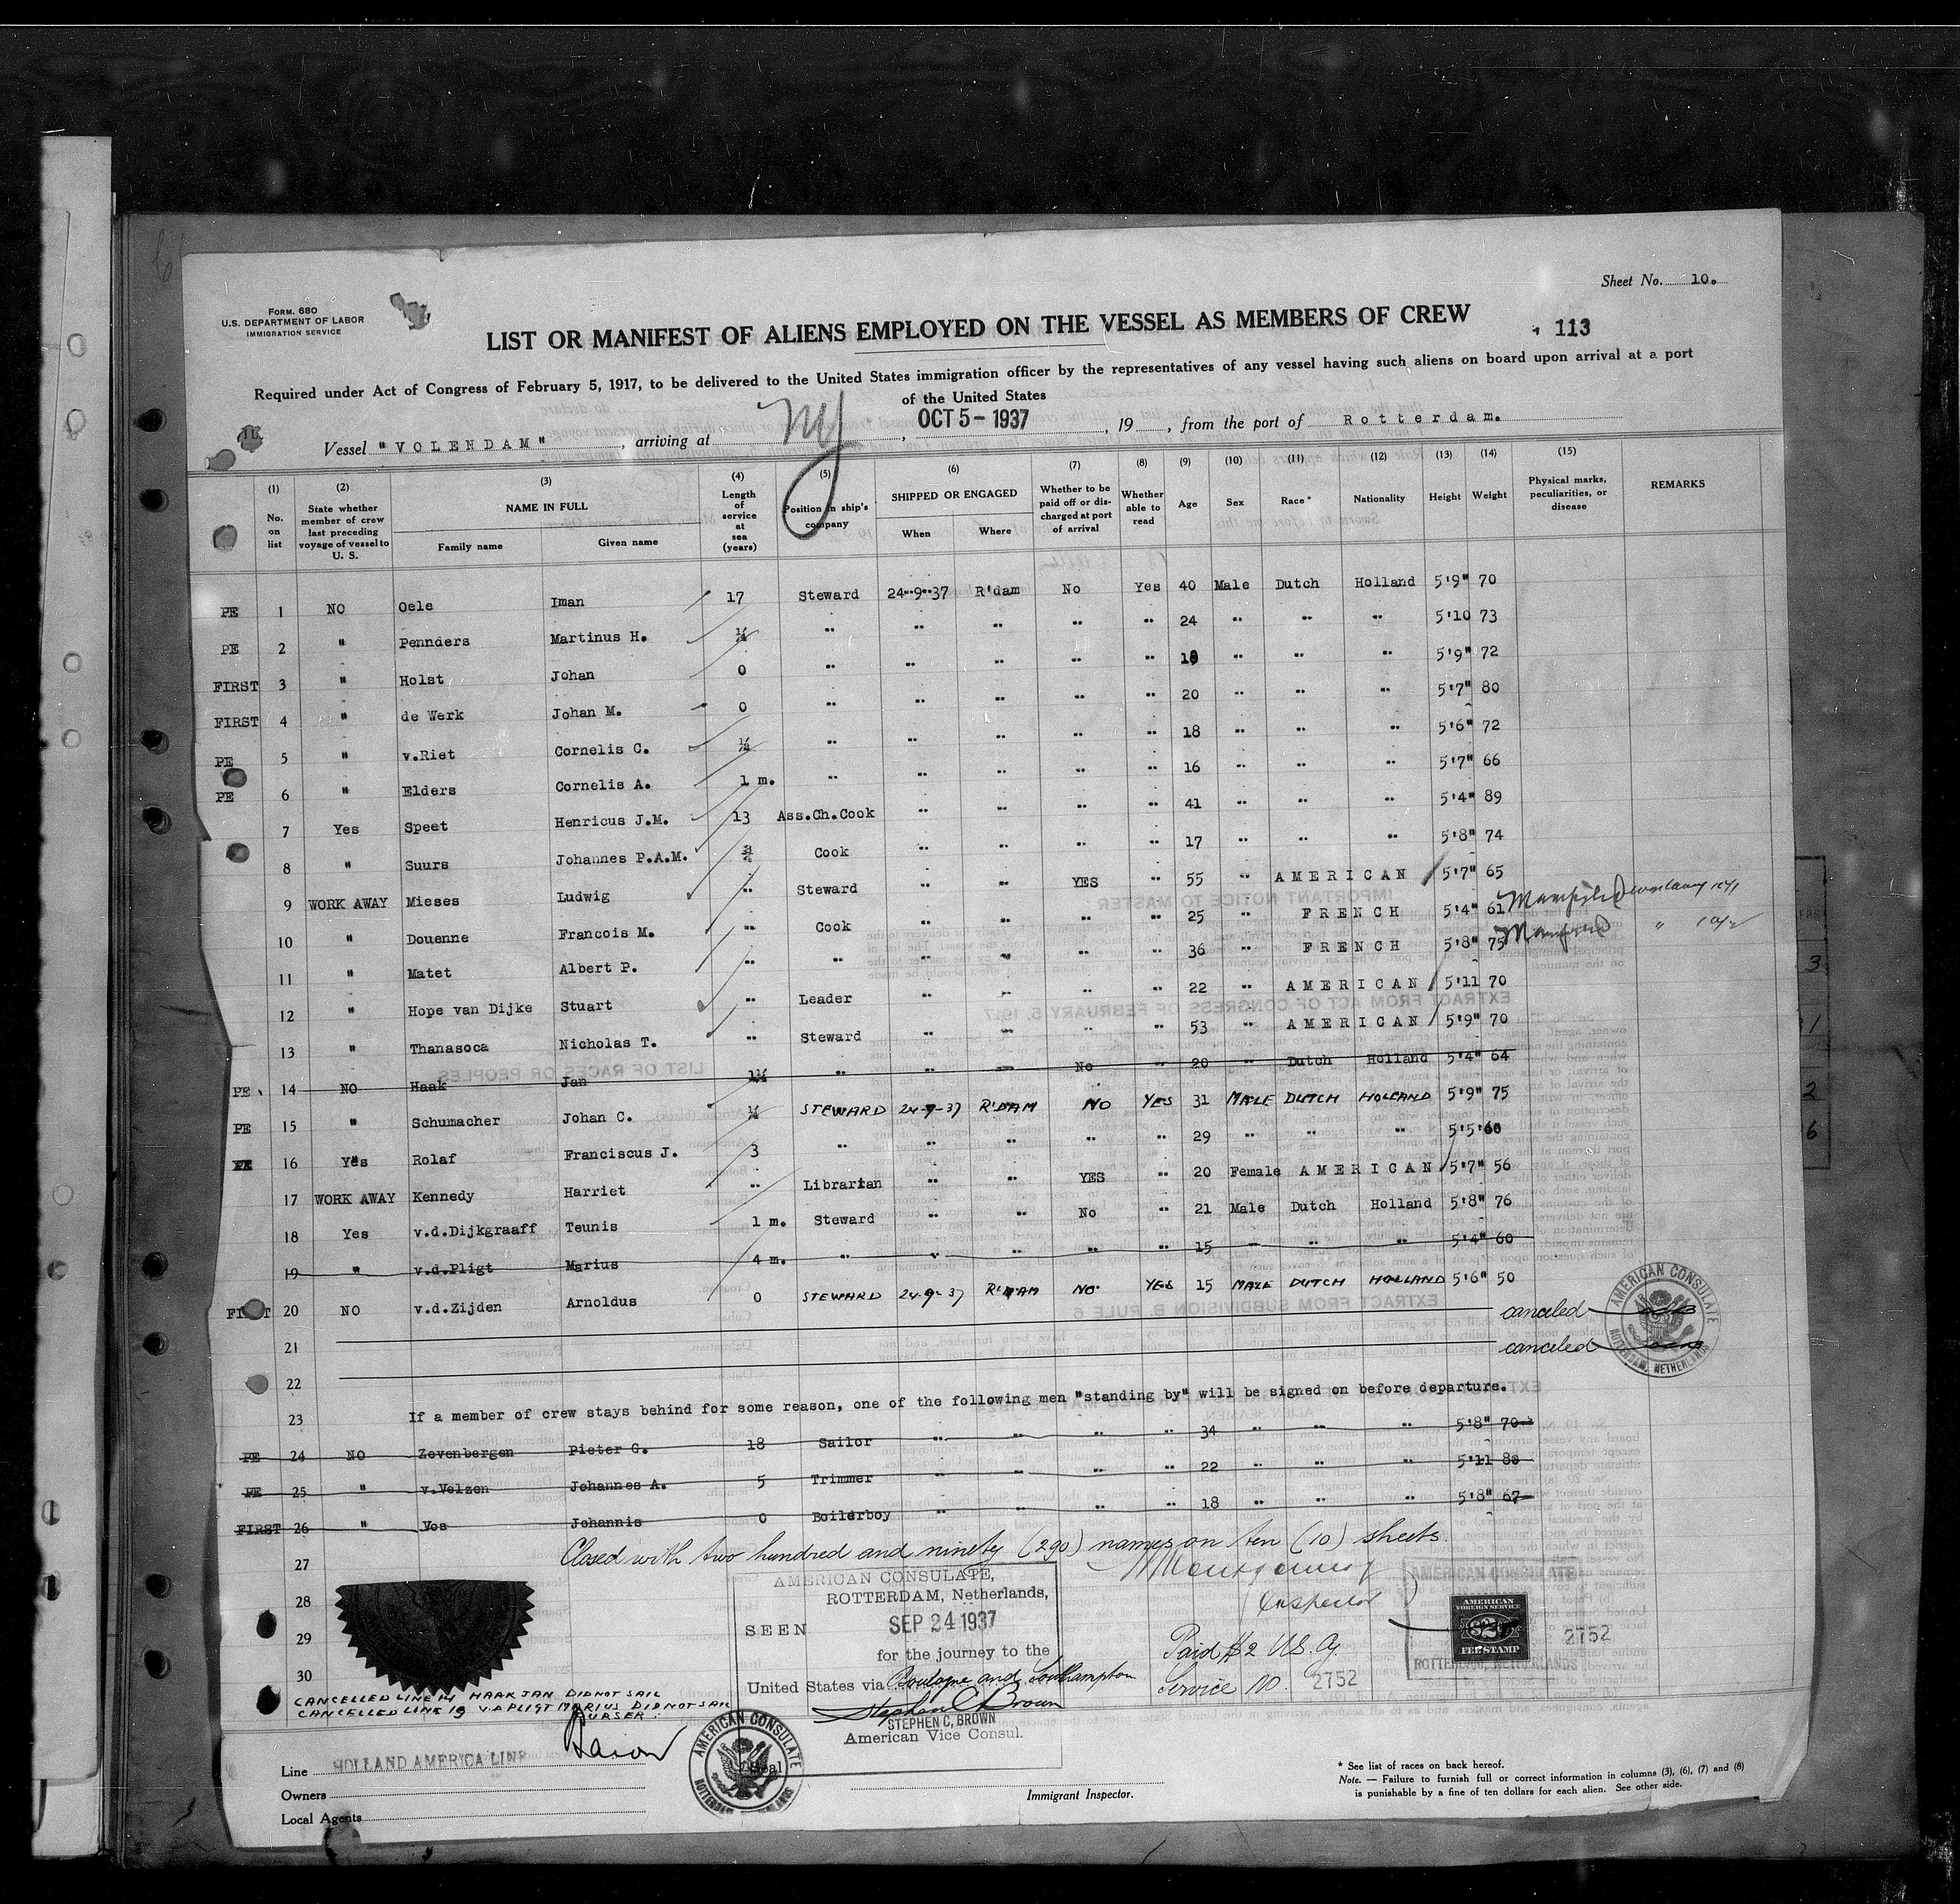 Sheet No. 10.
FORM 680
U.S. DEPARTMENT OF LABOR
IMMIGRATION SERVICE
LIST OR MANIFEST OF ALIENS EMPLOYED ON THE VESSEL AS MEMBERS OF CREW
113
Required under Act of Congress of February 5, 1917, to be delivered to the United States immigration officer by the representatives of any vessel having such aliens on board upon arrival at a port
of the United States
Vessel "VOLENDAM", arriving at NY, OCT 5 - 1937, 19, from the port of Rotterdam.
(1) (2) (3) (4) (5) (6) (7) (8) (9) (10) (11) (12) (13) (14) (15)
No. on list State whether member of crew last preceding voyage of vessel to U. S. NAME IN FULL Family name Given name Length of service at sea (years) Position in ship's company SHIPPED OR ENGAGED When Where Whether to be paid off or discharged at port of arrival Whether able to read Age Sex Race* Nationality Height Weight Physical marks, peculiarities, or disease REMARKS
PE 1 NO Oele Iman 17 Steward 24-9-37 R'dam No Yes 40 Male Dutch Holland 5'9" 70
PE 2 " Pennders Martinus H. ¼ " " " " " 24 " " " 5'10 73
FIRST 3 " Holst Johan 0 " " " " " 18 " " " 5'9" 72
FIRST 4 " de Werk Johan M. 0 " " " " " 20 " " " 5'7" 80
PE 5 " v.Riet Cornelis C. ¼ " " " " " 18 " " " 5'6" 72
PE 6 " Elders Cornelis A. 1 m. " " " " " 16 " " " 5'7" 66
7 Yes Speet Henricus J.M. 13 Ass.Ch.Cook " " " " 41 " " " 5'4" 89
8 " Suurs Johannes P.A.M. ¾ Cook " " " " 17 " " " 5'8" 74
9 WORK AWAY Mieses Ludwig " Steward " " YES " 55 " AMERICAN 5'7" 65
10 " Douenne Francois M. " Cook " " " " 25 " FRENCH 5'4" 61
11 " Matet Albert P. " " " " " " 36 " FRENCH 5'8" 75
12 " Hope van Dijke Stuart " Leader " " " " 22 " AMERICAN 5'11 70
13 " Thanasoca Nicholas T. " Steward " " " " 53 " AMERICAN 5'9" 70
PE 14 NO Haak Jan 1½ " " " No " 20 " Dutch Holland 5'4" 64
PE 15 " Schumacher Johan C. ¼ STEWARD 24-9-37 R'DAM NO YES 31 MALE DUTCH HOLLAND 5'9" 75
PE 16 Yes Rolaf Franciscus J. 3 " " " " " 29 " " " 5'5" 60
17 WORK AWAY Kennedy Harriet " Librarian " " YES " 20 Female AMERICAN 5'7" 56
18 Yes v.d.Dijkgraaff Teunis 1 m. Steward " " No " 21 Male Dutch Holland 5'8" 76
19 " v.d.Pligt Marius 4 m. " " " " " 15 " " " 5'4" 60
FIRST 20 NO v.d.Zijden Arnoldus 0 STEWARD 24-9-37 R'DAM NO YES 15 MALE DUTCH HOLLAND 5'6" 50
21 canceled
22 canceled
23 If a member of crew stays behind for some reason, one of the following men "standing by" will be signed on before departure.
PE 24 NO Zevenbergen Pieter G. 18 Sailor " " " " 34 " " " 5'8" 70
PE 25 " v.Velzen Johannes A. 5 Trimmer " " " " 22 " " " 5'11 80
FIRST 26 " Vos Johannis 0 Boilerboy " " " " 18 " " " 5'8" 67
27 Closed with two hundred and ninety (290) names on ten (10) sheets.
28
29
30
AMERICAN CONSULATE,
ROTTERDAM, Netherlands,
SEEN SEP 24 1937
for the journey to the
United States via Boulogne and Southampton
Stephen C Brown
STEPHEN C. BROWN
American Vice Consul.
Montgomery
Inspector
Paid $2 US. Cy.
Service No. 2752
AMERICAN CONSULATE
AMERICAN
FOREIGN SERVICE
$2
FEE STAMP
2752
ROTTERDAM, NETHERLANDS
AMERICAN CONSULATE
ROTTERDAM, NETHERLANDS
CANCELLED LINE 14 HAAK JAN DID NOT SAIL
CANCELLED LINE 19 V.D PLIGT MARIUS DID NOT SAIL
PURSER.
Line HOLLAND AMERICA LINE
Owners
Local Agents
AMERICAN CONSULATE
ROTTERDAM
Seal
Immigrant Inspector.
* See list of races on back hereof.
Note. — Failure to furnish full or correct information in columns (3), (6), (7) and (8)
is punishable by a fine of ten dollars for each alien. See other side.